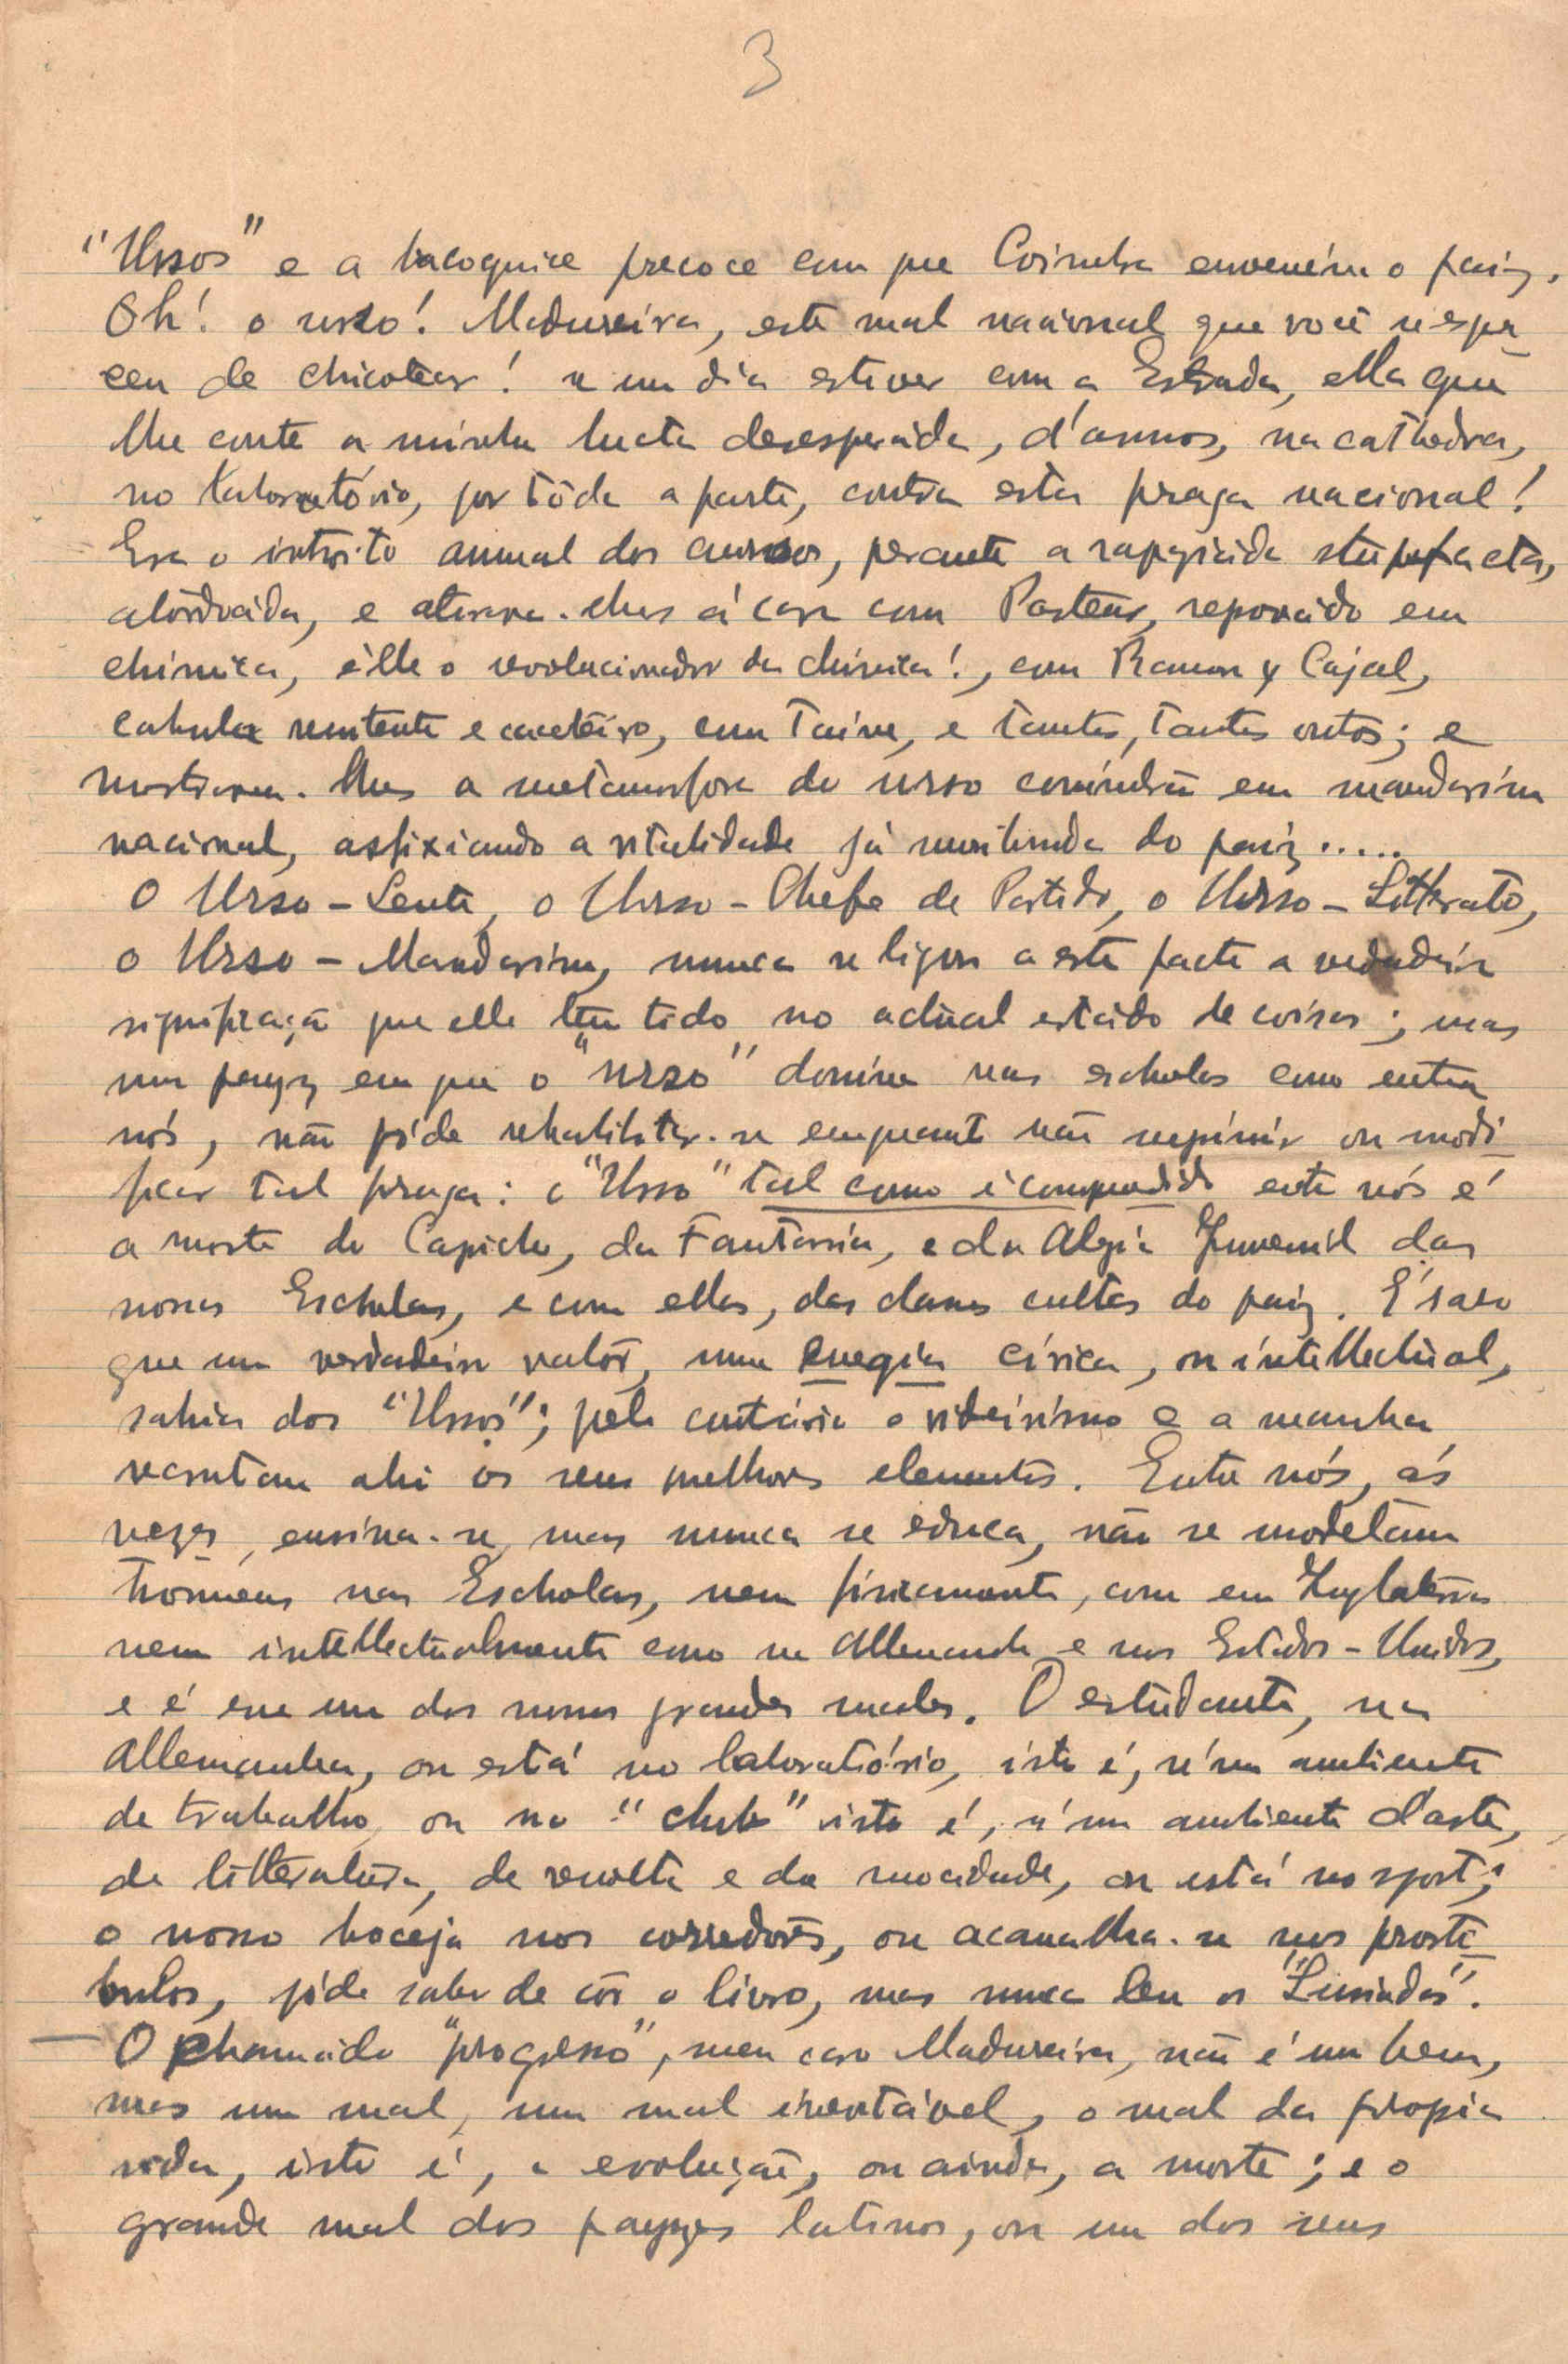 3
"Ursos" e a bacoquice precoce com que Coimbra envenéna o paiz.
Oh! o urso! Madureira, este mal nacional que você s'esque
ceu de chicotear! se um dia estiver com a Estrada, ella que
lhe conte a minha lucta desesperáda, d'annos, na cathedra,
no laboratório, por tôda a parte, contra esta praga nacional!
Era o introito annual dos cursos, perante a rapaziáda stupefacta,
atordoáda, e atirava-lhes á cara com Pasteur, reprovádo em
chimica, élle o revolucionador da chimica!, com Ramon y Cajal,
cabula e caceteiro, com Taine, e tantos, tantos outros; e
mostrava-lhes a metamorfose do urso coimbrão em mandarim
nacional, asfixiando a vitalidade já moribunda do paiz.....
O Urso-Lente, o Urso-Chefe de Partido, o Urso-Litterato,
o Urso-Mandarim, nunca se ligou a este facto a verdadeira
significação que elle tem tido no actual estádo de coisas; mas
um payz em que o "urso" domina nas escholas como entre
nós, não póde rehabilitar-se emquanto não suprimir ou modi
ficar tal praga: o "Urso" tal como é compreendido entre nós é
a morte do Capricho, da Fantasia, e da Alegria Juvenil das
nossas Escholas, e com ellas, das classes cultas do paiz. É raro
que um verdadeiro valôr, uma energia cívica, ou intellectual,
sahia dos "Ursos"; pelo contrário o videirismo e a manha
recrutam ahi os seus melhores elementos. Entre nós, ás
vezes, ensina-se, mas nunca se educa, não se modelam
hômens nas Escholas, nem fisicamente, como em Inglaterra
nem intellectualmente como na Allemanha e nos Estados-Unidos,
e é esse um dos nossos grandes males. O estudante, na
Allemanha, ou está no laboratório, isto é, n'um ambiente
de trabalho, ou no "club" isto é, n'um ambiente d'arte,
de litteratura, de revolta e de mocidade, ou está no sport;
o nosso boceja nos corredôres, ou acanalha-se nos prosti
bulos, póde saber de cór o livro, mas nunca leu os "Lusiadas".
— O chamádo "progresso", meu caro Madureira, não é um bem,
mas um mal, um mal inevitável, o mal da propria
vida, isto é, a evolução, ou ainda, a morte; e o
grande mal dos payzes latinos, ou um dos seus